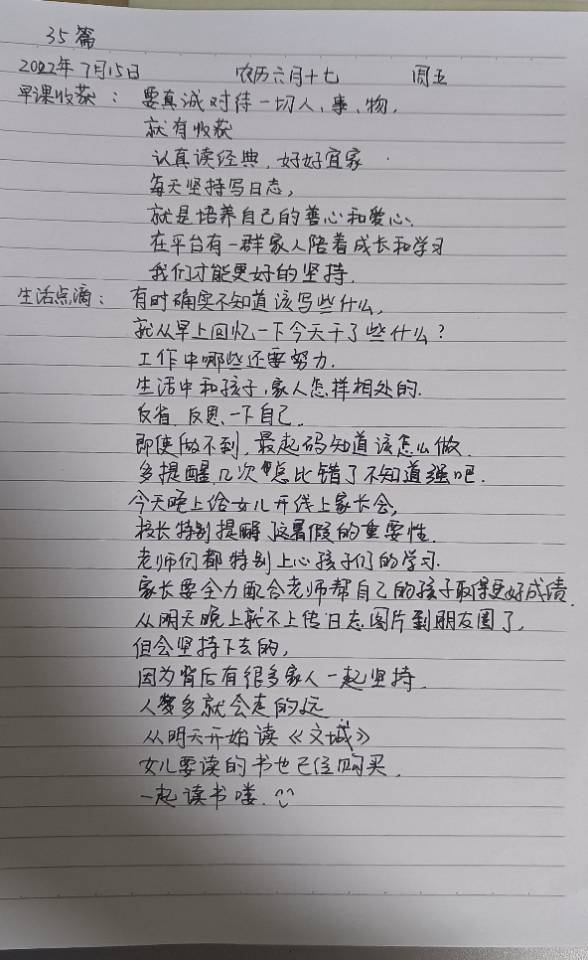 35篇
2022年7月15日 农历六月十七 周五
早课收获：要真诚对待一切人、事、物,
就有收获
认真读经典,好好宜家
每天坚持写日志,
就是培养自己的善心和爱心、
在平台有一群家人陪着成长和学习
我们才能更好的坚持.
生活点滴：有时确实不知道该写些什么,
就从早上回忆一下今天干了些什么?
工作中哪些还要努力.
生活中和孩子,家人怎样相处的.
反省,反思、一下自己.
即使做不到,最起码知道该怎么做.
多提醒几次 总比错了不知道强吧.
今天晚上给女儿开线上家长会,
校长特别提醒 这暑假的重要性.
老师们都特别上心孩子们的学习.
家长要全力配合老师帮自己的孩子取得更好成绩.
从明天晚上就不上传日志图片到朋友圈了,
但会坚持下去的,
因为背后有很多家人一起坚持.
人多就会走的远
从明天开始读《文城》
女儿要读的书也已经购买.
一起读书喽.